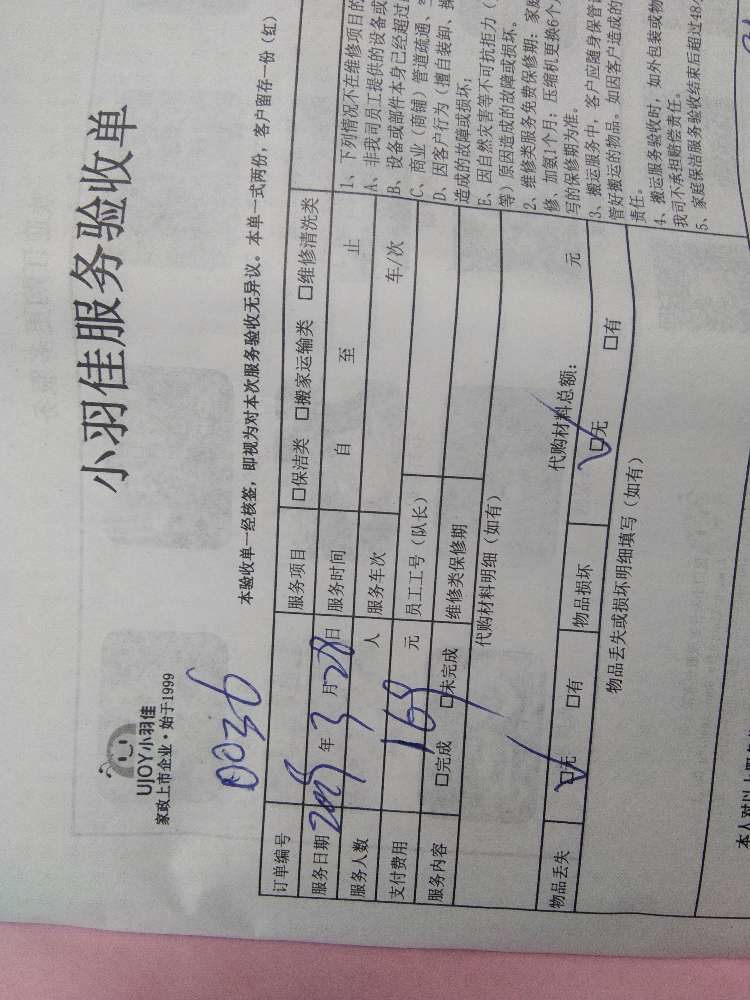 UJOY小羽佳
家政上市企业·始于1999
小羽佳服务验收单
0036
本验收单一经核签，即视为对本次服务验收无异议。本单一式两份，客户留存一份（红）
订单编号 服务项目 □保洁类 □搬家运输类 □维修清洗类
服务日期 年3月28日 服务时间 自 至 止
服务人数 人 服务车次 车/次
支付费用 169 元 员工工号（队长）
服务内容 □完成 □未完成 维修类保修期
代购材料明细（如有）
代购材料总额： 元
物品丢失 □无 □有 物品损坏 □无 □有
物品丢失或损坏明细填写（如有）
1、下列情况不在维修项目的
A、非我司员工提供的设备或
B、设备或部件本身已经超过
C、商业（商铺）管道疏通、
D、因客户行为（擅自装卸、
造成的故障或损坏；
E、因自然灾害等不可抗拒力（
等）原因造成的故障或损坏。
2、维修类服务免费保修期：家
修、加氨1个月；压缩机更换6个
写的保修期为准。
3、搬运服务中，客户应随身保管
管好搬运的物品。如因客户造成的
责任。
4、搬运服务验收时，如外包装或物
我司不承担赔偿责任。
5、家庭保洁服务验收结束后超过48